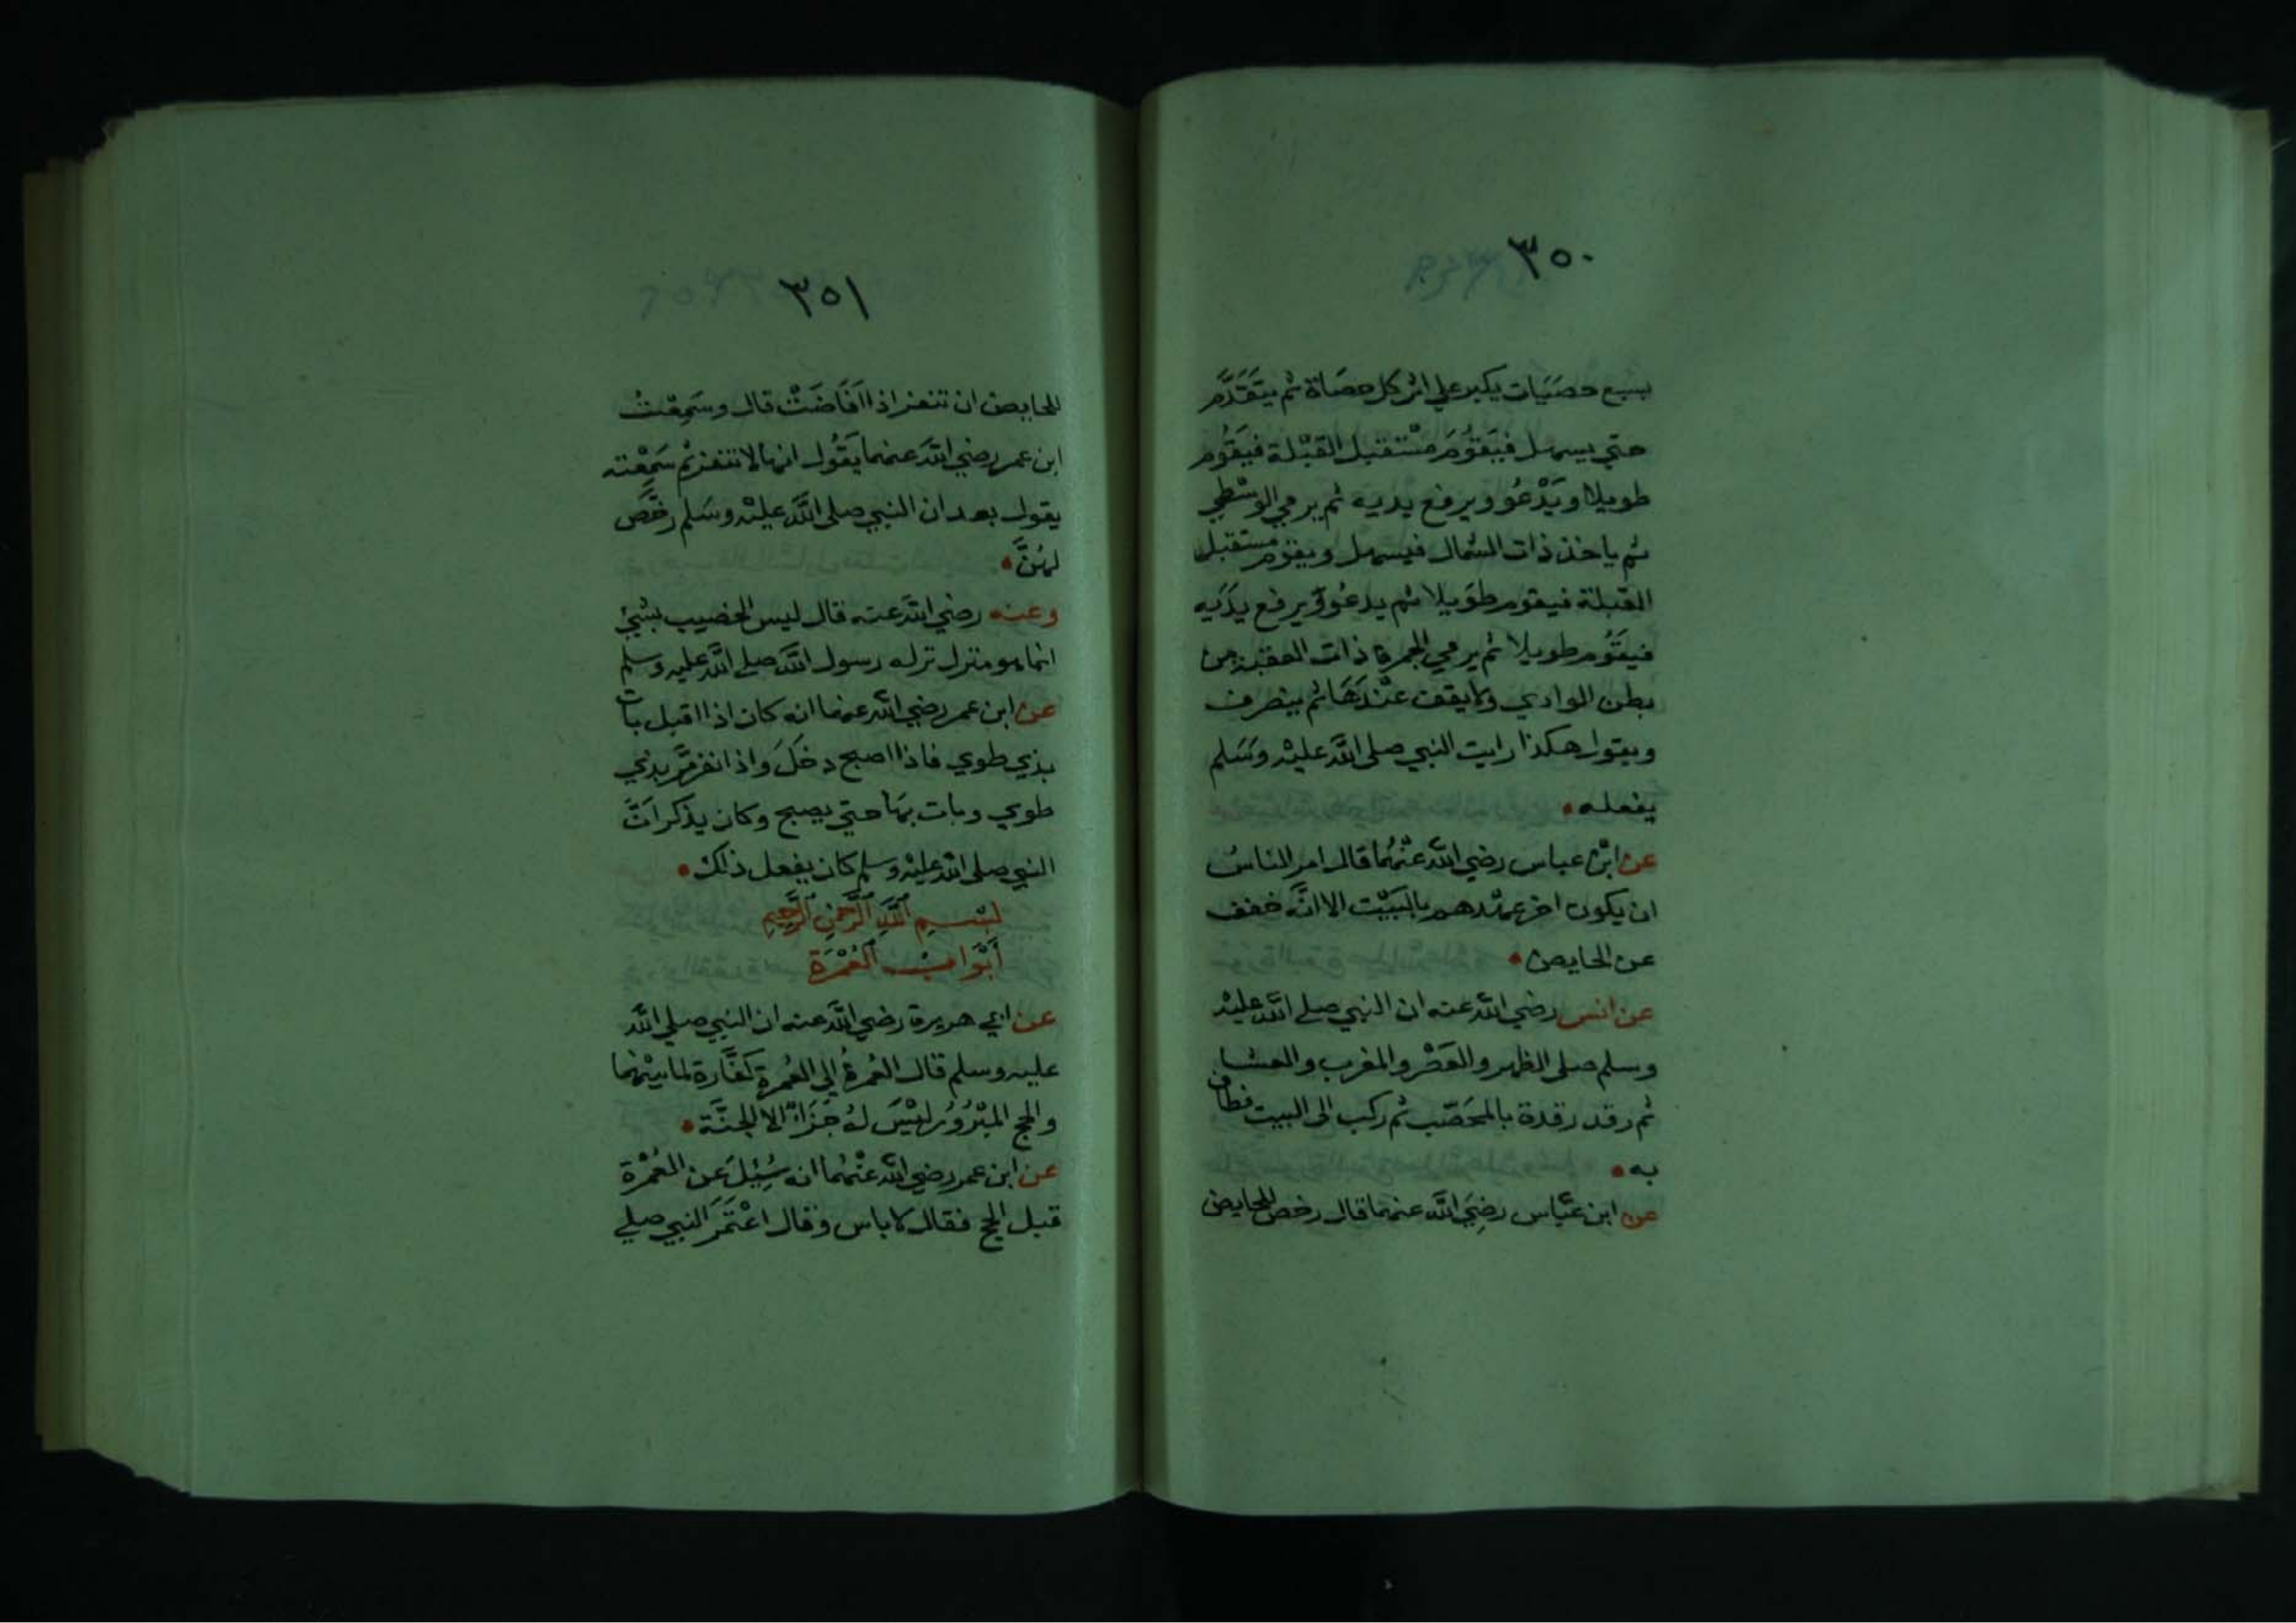 ٣٥٠
بسبع حصَيَات يكبر علي اثر كل حصَاة ثم يتَقَدَّم
حتي يسهل فيَقوُمَ مسْتقبل القبْلة فيَقوُم
طويلا ويَدْعُو ويرفع يديه ثم يرمي الوسْطي
ثم ياخذ ذات الشمال فيسهل ويقوم مستقبل
القبلة فيقوم طوَيلا ثم يدعُو ويرفع يدَيه
فيقوُم طويلا ثم يرمي الجمرة ذات العقبة من
بطن الوادي ولا يقف عنْدَهَا ثم ينصرف
ويقول هكذا رايت النبي صلى اللَّه عليْه وسَلم
يفعله
عن ابْن عباس رضي اللَّه عنْهُما قال امر الناسُ
ان يكون اخر عهْدهم بالبَيْت الا انَّه خفف
عن الحايض
عن انس رضي اللَّه عنه ان النبي صلى اللَّه عليْه
وسلم صلى الظهر والعَصْر والمغرب والعشا
ثم رقد رقدة بالمحَصّب ثم ركب الى البيت فطاف
به
عن ابن عبّاس رضِيَ اللَّه عنهما قال رخص للحايض
٣٥١
للحايض ان تنفر اذا افَاضَتْ قال وسَمِعْتُ
ابن عمر رضي اللَّه عنهما يَقُول انها لا تنفر ثم سَمِعْته
يقول بعد ان النبي صلى اللَّه عليْه وسَلم رخَّصَ
لهُنَّ
وعنه رضي اللَّه عنه قال ليس الحصيب بشيْ
انما هو منزل نزله رسول اللَّه صلى اللَّه عليه وسلم
عن ابن عمر رضي اللَّه عنهما انه كان اذا اقبل بات
بذي طوي فاذا اصبح دخَلَ واذا نفر مَّر بذي
طوي وبات بهَا حتي يصبح وكان يذكر اَنَّ
النبي صلى اللَّه عليْه وسلم كان يفعل ذلك
بسْمِ اللَّهِ الرَّحْمنِ الرَّحِيمِ
أبْوَابُ العُمْرَة
عن ابي هريرة رضي اللَّه عنه ان النبي صلى اللَّه
عليه وسلم قال العُمرةُ إلي العُمرة كفَّارة لما بيْنهما
والحج المبْرُوُر ليْسَ لهُ جَزَاءٌ الا الجنَّة
عن ابن عمر رضي اللَّه عنْهُما انه سُئِلَ عَن العُمْرة
قبل الحج فقال لا باس وقال اعْتمَرَ النبي صلي